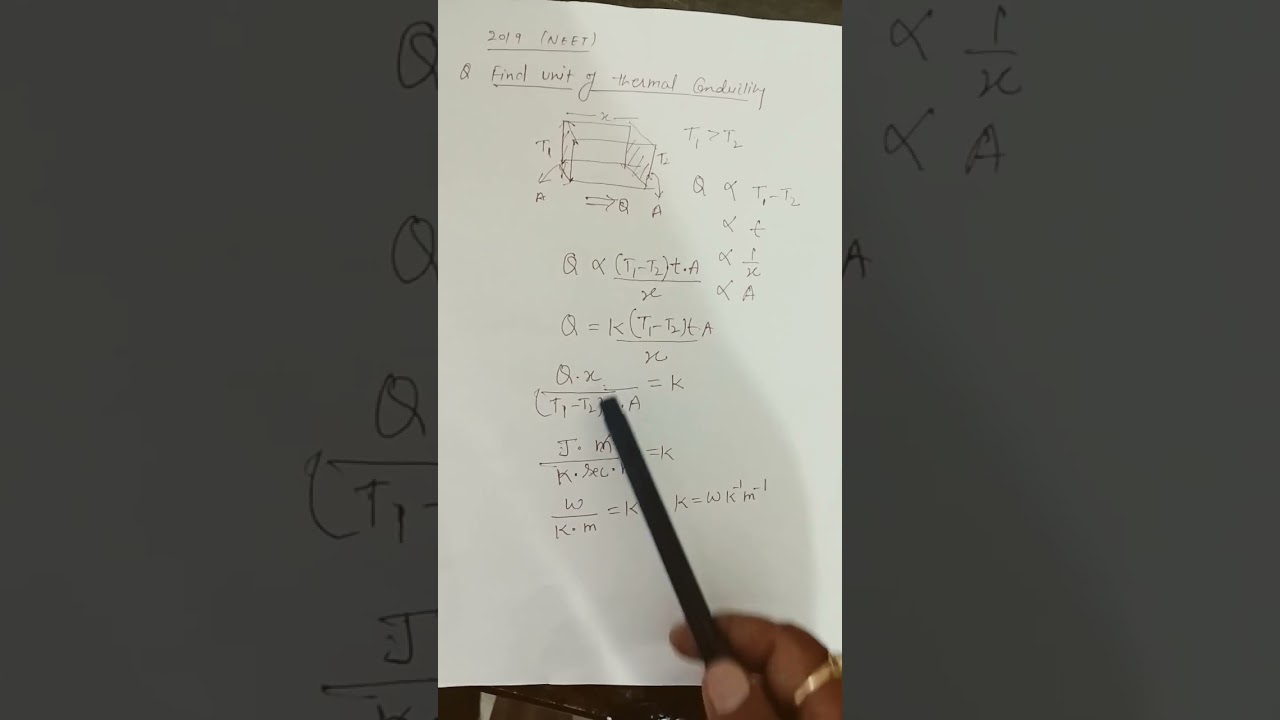 2019 (NEET)
Q Find unit of thermal Conducility
x
T₁ T₂
A A
⇒ Q
T₁ > T₂
Q ∝ T₁-T₂
∝ t
∝ 1/x
∝ A
Q ∝ (T₁-T₂)t.A / x
Q = K(T₁-T₂)t.A / x
Q.x / (T₁-T₂) .A = K
J. m / K.sec. = K
W / K.m = K K = W K⁻¹ m⁻¹